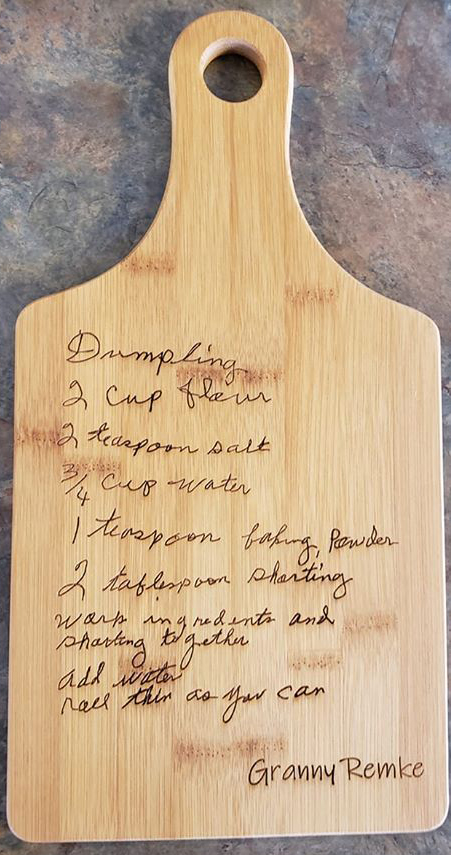 Dumpling
2 cup flour
2 teaspoon salt
3/4 cup water
1 teaspoon baking, Powder
2 tablespoon shorting
work ingredents and
shorting together
add water
roll thin as you can
Granny Remke